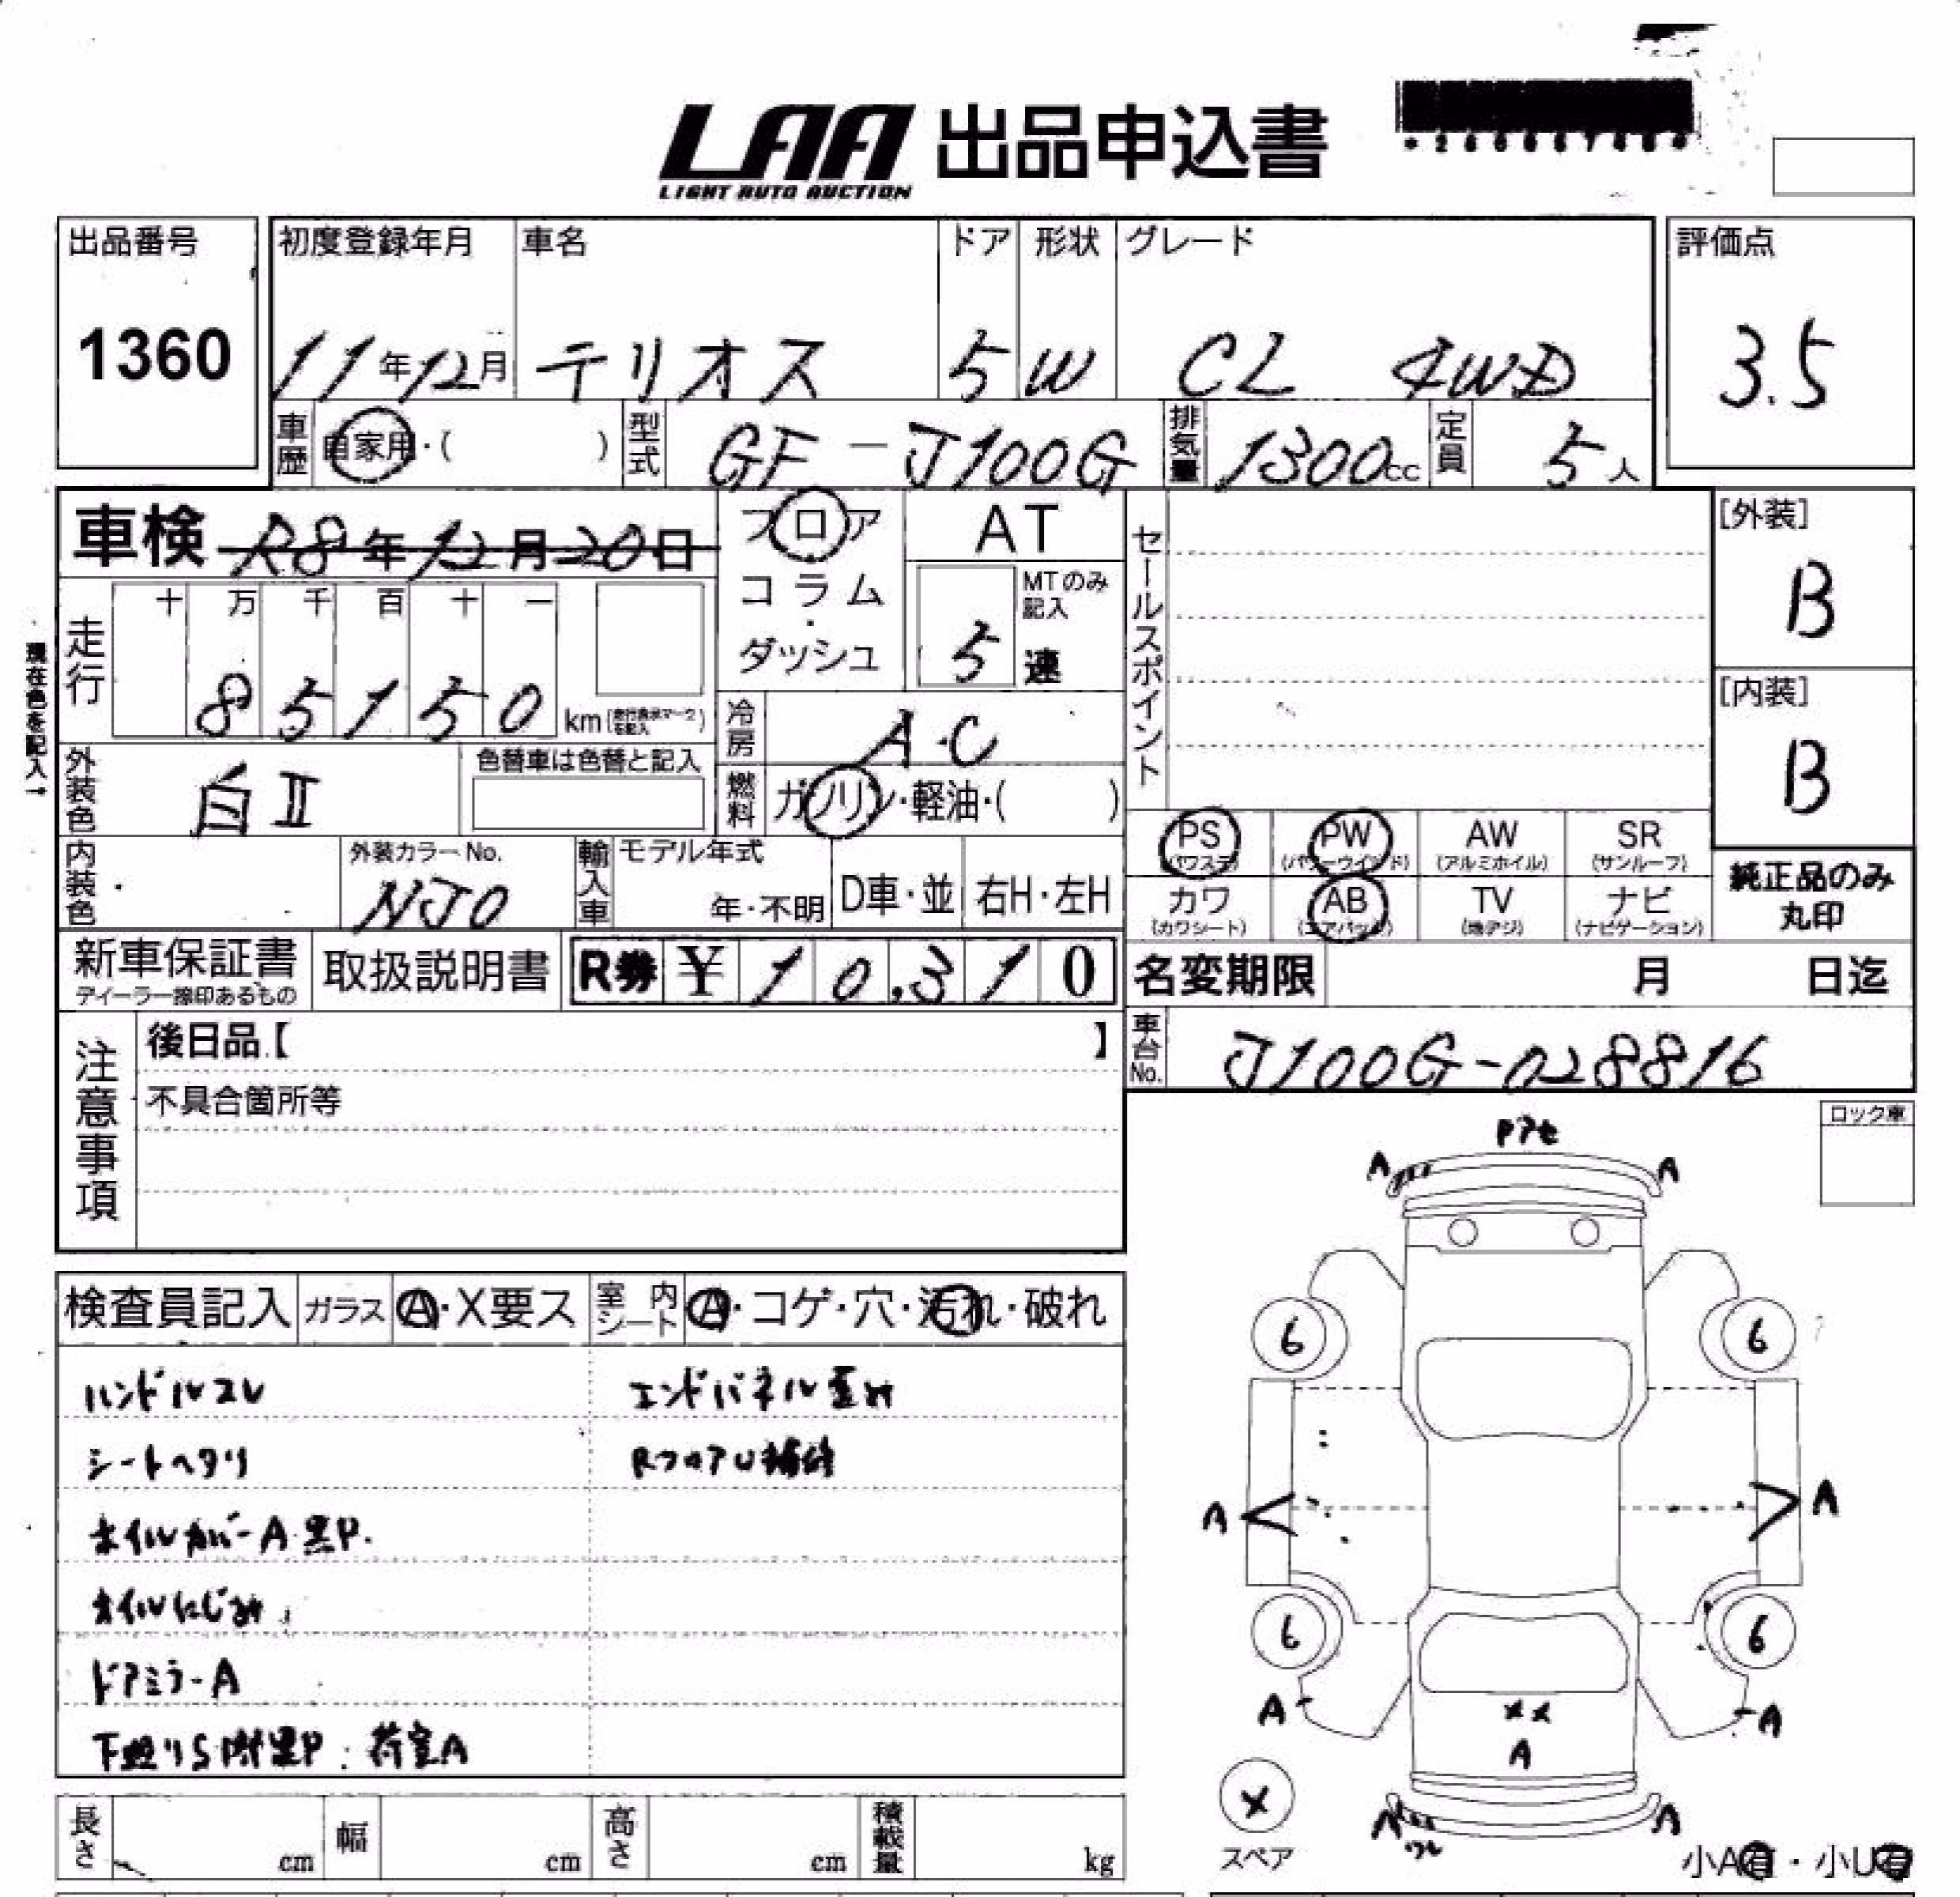 LAA 出品申込書
LIGHT AUTO AUCTION
出品番号 初度登録年月 車名 ドア 形状 グレード 評価点
1360 11年12月 テリオス 5 W CL 4WD 3.5
車歴 自家用・( ) 型式 GF-J100G 排気量 1300cc 定員 5人
車検 R8年12月20日 フロア AT セールスポイント [外装]
コラム・ MTのみ記入 B
ダッシュ 5速
走行 十 万 千 百 十 一
85150 km
現在色を記入↑
冷房 A・C [内装]
B
外装色 白II 色替車は色替と記入 燃料 ガソリン・軽油・( )
PS PW AW SR
(パワステ) (パワーウインド) (アルミホイル) (サンルーフ)
内装色 外装カラーNo. 輸入車 モデル年式
NJ0 年・不明 D車・並 右H・左H
カワ AB TV ナビ 純正品のみ
(カワシート) (エアバック) (地デジ) (ナビゲーション) 丸印
新車保証書 取扱説明書 R券 ¥10,310 名変期限 月 日迄
ディーラー捺印あるもの
注意事項 後日品【 】 車台No. J100G-028816
不具合箇所等
ロック車
Pアセ
A A
検査員記入 ガラス A・X要ス 室内シート A・コゲ・穴・汚れ・破れ
6 6
ハンドルスレ エンドパネル歪み
シートヘタリ RフロアU補修
ホイルカバーA 黒P.
A A
オイルにじみ
6 6
ドアミラーA
A A
XX
A
下廻りS附黒P 荷室A
X
スペア
A A
ワレ
長さ cm 幅 cm 高さ cm 積載量 kg
小A有・小U有